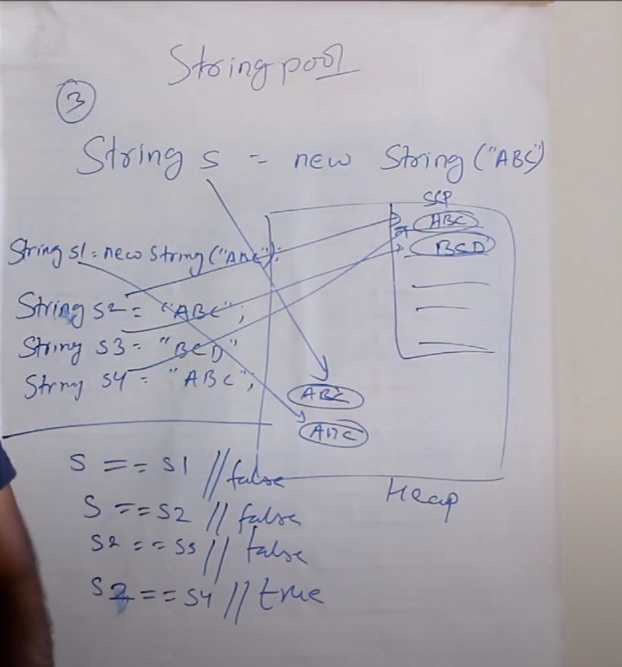 String pool
3
String s = new String ("ABC")
SCP
ABC
BCD
String s1 = new String ("ABC");
String s2 = "ABC";
String s3 = "BCD"
String s4 = "ABC";
ABC
ABC
Heap
s == s1 // false
s == s2 // false
s2 == s3 // false
s2 == s4 // true